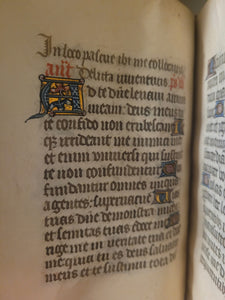 In loco pascue ibi me collocauit
añt Delicta iuuentutis ps
Ad te dñe leuaui animam
meam: deus meus in
te confido non erubescam
Neq; irrideant me inimici mei
et enim uniuersi qui sustinent
te non confundentur
Confundantur omnes iniqua
agentes: superuacue Uias
tuas dñe demonstra michi
et semitas tuas edoce me Diri
rige me in ueritate tua et doce
me quia tu es deus saluator
meus et te sustinui tota die